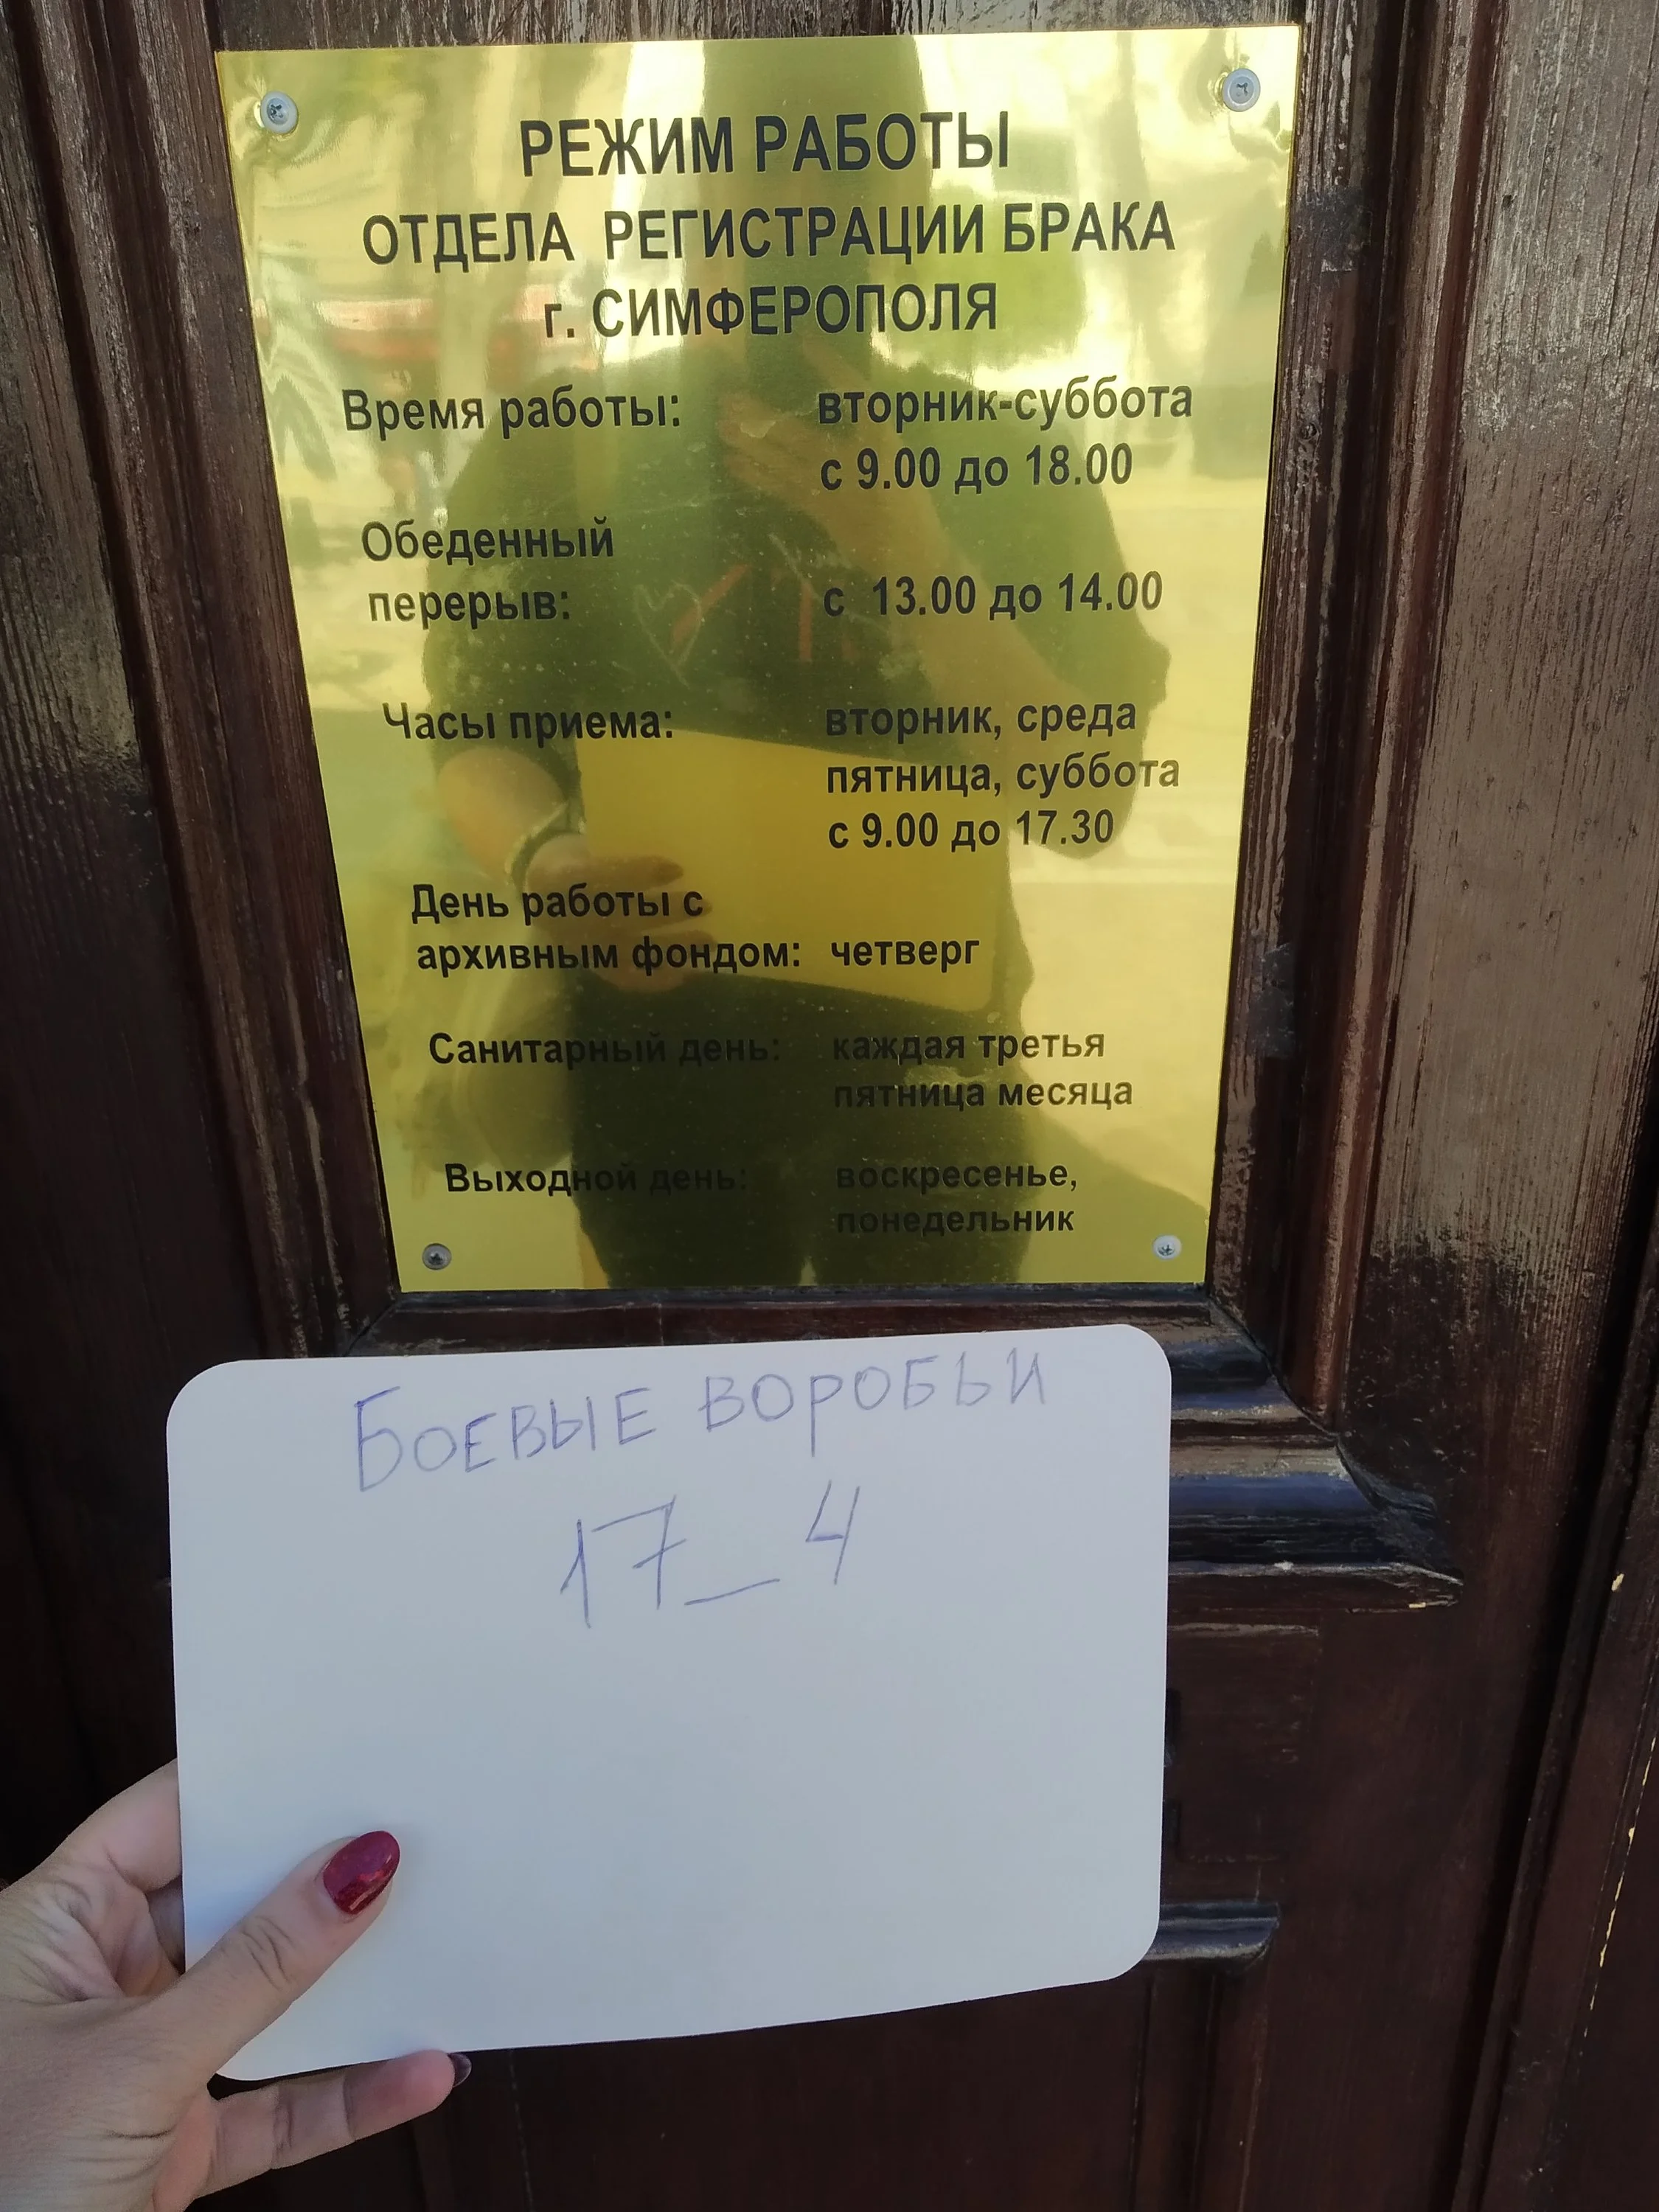 РЕЖИМ РАБОТЫ
ОТДЕЛА РЕГИСТРАЦИИ БРАКА
г. СИМФЕРОПОЛЯ
Время работы: вторник-суббота
с 9.00 до 18.00
Обеденный
перерыв: с 13.00 до 14.00
Часы приема: вторник, среда
пятница, суббота
с 9.00 до 17.30
День работы с
архивным фондом: четверг
Санитарный день: каждая третья
пятница месяца
Выходной день: воскресенье,
понедельник
БОЕВЫЕ ВОРОБЬИ
17_4